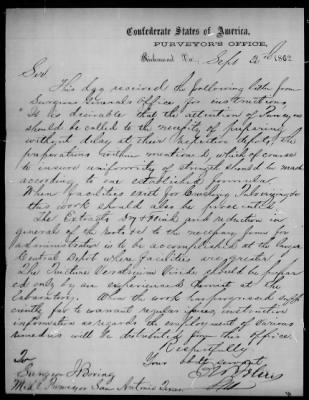 Confederate States of America,
PURVEYOR'S OFFICE,
Richmond Va., Sept 2d 1862
Sir
This day received the following letter from
Surgeon General's Office for instructions,
"It is desirable that the attention of Purveyors
should be called to the necessity of preparing
without delay at their respective depots, the
preparations within mentioned, which of course
to insure uniformity of strength should be made
according to one established formula.
When facilities exist for Crushing Pulverizing &c
this work should also be executed.
The Extracts dry & and reduction in
general of the roots &c to the necessary forms for
administration is to be accomplished at the
Central Depot where facilities are greater.
The Tincture Veratrum Viride should be prepar
ed only by an experienced Chemist at the
laboratory. When the work has progressed suffi
ciently far to warrant regular issues, instruction
information as regards the employment of various
remedies will be distributed from this office.
Respectfully
Your obdt servant
To
Surgeon
Med'l Purveyor San Antonio Texas